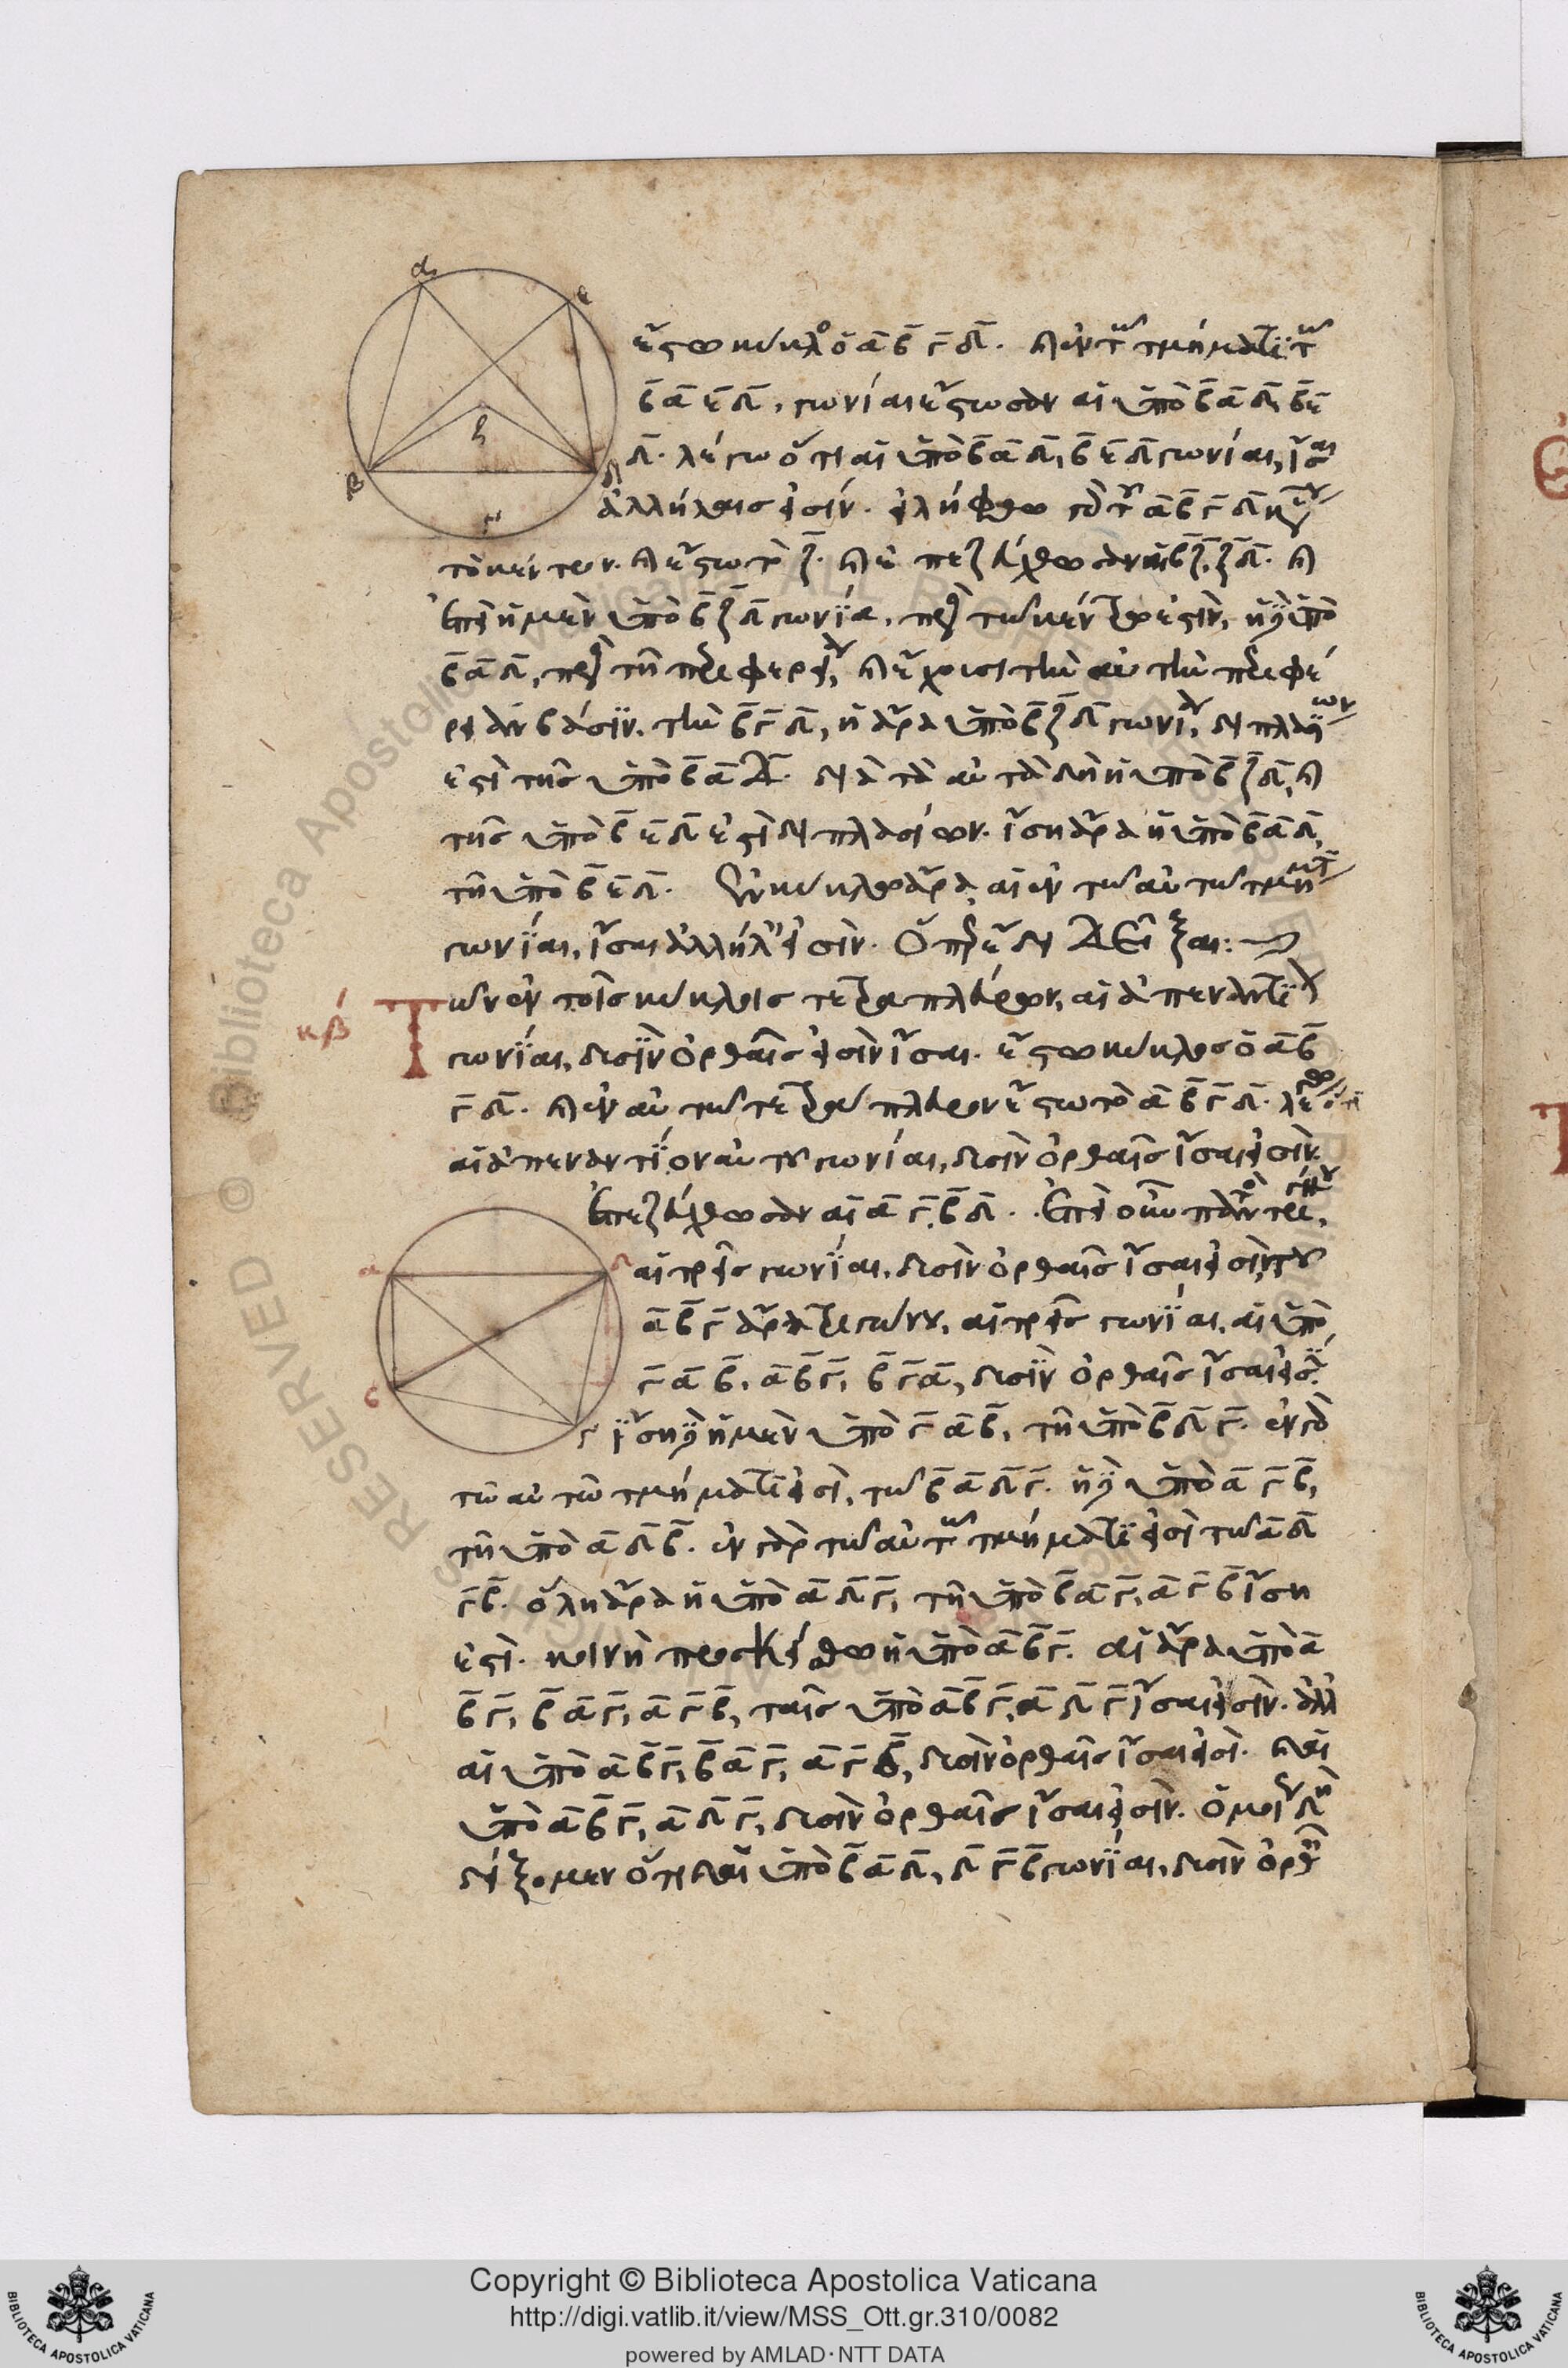 ἔστω κύκλος ὁ α β γ δ. καὶ ἐν τῷ τμήματι τῷ
β α ε δ, γωνίαι ἔστωσαν αἱ ὑπὸ β α δ, β ε
δ. λέγω ὅτι αἱ ὑπὸ β α δ, β ε δ γωνίαι, ἴσαι
ἀλλήλαις εἰσίν. εἰλήφθω γὰρ τοῦ α β γ δ κύκλου
τὸ κέντρον. καὶ ἔστω τὸ ζ. καὶ ἐπεζεύχθωσαν αἱ β ζ, ζ δ. καὶ
ἐπεὶ ἡ μὲν ὑπὸ β ζ δ γωνία, πρὸς τῷ κέντρῳ ἐστίν, ἡ δὲ ὑπὸ
β α δ, πρὸς τῇ περιφερείᾳ, καὶ ἔχουσι τὴν αὐτὴν περιφέ
ρειαν βάσιν, τὴν β γ δ, ἡ ἄρα ὑπὸ β ζ δ γωνία, διπλασίων
ἐστὶ τῆς ὑπὸ β α δ. διὰ τὰ αὐτὰ δὴ ἡ ὑπὸ β ζ δ, καὶ
τῆς ὑπὸ β ε δ ἐστὶ διπλασίων. ἴση ἄρα ἡ ὑπὸ β α δ,
τῇ ὑπὸ β ε δ. Ἐν κύκλῳ ἄρα, αἱ ἐν τῷ αὐτῷ τμήματι
γωνίαι, ἴσαι ἀλλήλαις εἰσίν. Ὅπερ ἔδει δεῖξαι:
κβ Τῶν ἐν τοῖς κύκλοις τετραπλεύρων, αἱ ἀπεναντίον
γωνίαι, δυσὶν ὀρθαῖς εἰσὶν ἴσαι. ἔστω κύκλος ὁ α β
γ δ. καὶ ἐν αὐτῷ τετράπλευρον ἔστω τὸ α β γ δ. λέγω ὅτι
αἱ ἀπεναντίον αὐτοῦ γωνίαι, δυσὶν ὀρθαῖς ἴσαι εἰσίν.
Ἐπεζεύχθωσαν αἱ α γ, β δ. Ἐπεὶ οὖν παντὸς τριγώνου,
αἱ τρεῖς γωνίαι, δυσὶν ὀρθαῖς ἴσαι εἰσίν, τοῦ
α β γ ἄρα τριγώνου, αἱ τρεῖς γωνίαι, αἱ ὑπὸ
γ α β, α β γ, β γ α, δυσὶν ὀρθαῖς ἴσαι εἰσίν.
ἴση δὲ ἡ μὲν ὑπὸ γ α β, τῇ ὑπὸ β δ γ. ἐν γὰρ
τῷ αὐτῷ τμήματι εἰσί, τῷ β α δ γ. ἡ δὲ ὑπὸ α γ β,
τῇ ὑπὸ α δ β. ἐν γὰρ τῷ αὐτῷ τμήματι εἰσὶ τῷ α δ
γ β. ὅλη ἄρα ἡ ὑπὸ α δ γ, τῇ ὑπὸ β α γ, α γ β ἴση
ἐστί. κοινὴ προσκείσθω ἡ ὑπὸ α β γ. αἱ ἄρα ὑπὸ α
β γ, β α γ, α γ β, ταῖς ὑπὸ α β γ, α δ γ ἴσαι εἰσίν. ἀλλ
αἱ ὑπὸ α β γ, β α γ, α γ β, δυσὶν ὀρθαῖς ἴσαι εἰσί. καὶ αἱ
ὑπὸ α β γ, α δ γ, δυσὶν ὀρθαῖς ἴσαι εἰσίν. ὁμοίως δὴ
δείξομεν ὅτι καὶ αἱ ὑπὸ β α δ, δ γ β γωνίαι, δυσὶν ὀρθαῖς
α
ε
ζ
β
δ
γ
α
δ
β
γ
Copyright © Biblioteca Apostolica Vaticana
http://digi.vatlib.it/view/MSS_Ott.gr.310/0082
powered by AMLAD·NTT DATA
BIBLIOTECA APOSTOLICA VATICANA
BIBLIOTECA APOSTOLICA VATICANA